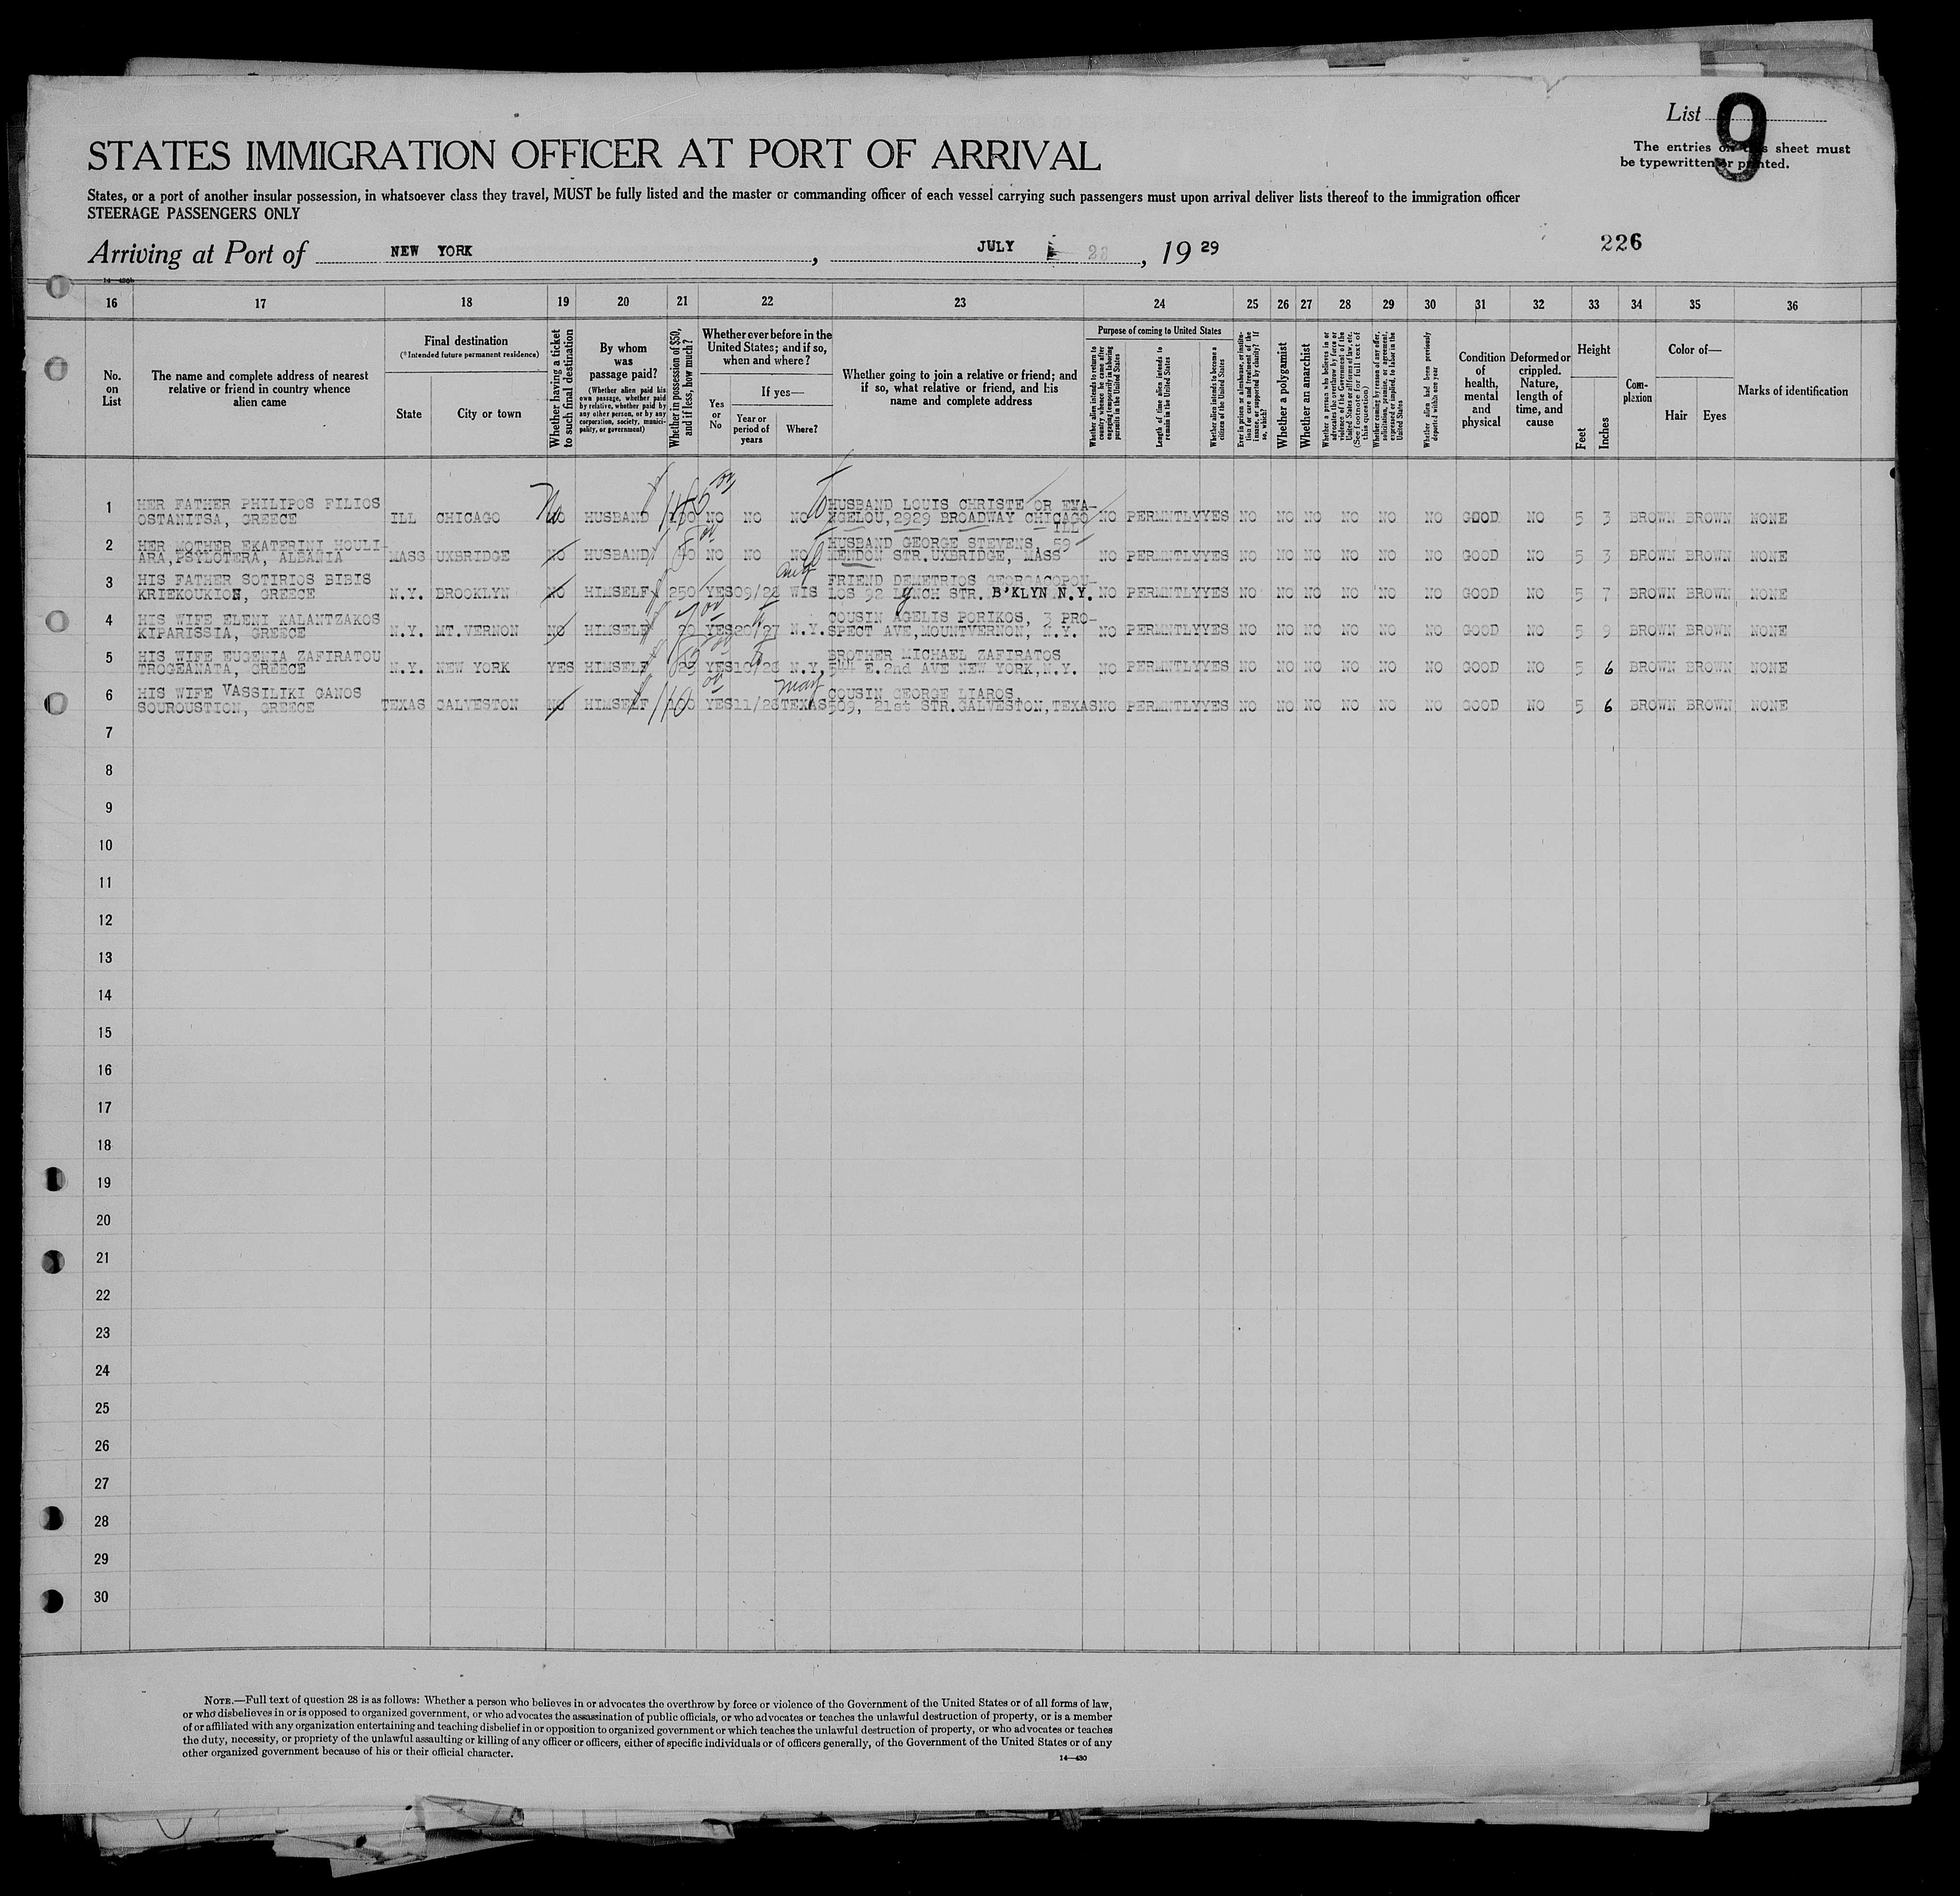 List 9
The entries on this sheet must
be typewritten or printed.
STATES IMMIGRATION OFFICER AT PORT OF ARRIVAL
States, or a port of another insular possession, in whatsoever class they travel, MUST be fully listed and the master or commanding officer of each vessel carrying such passengers must upon arrival deliver lists thereof to the immigration officer
STEERAGE PASSENGERS ONLY
Arriving at Port of NEW YORK, JULY 23, 1929
226
14—430b
16 17 18 19 20 21 22 23 24 25 26 27 28 29 30 31 32 33 34 35 36
No. on List
The name and complete address of nearest relative or friend in country whence alien came
Final destination
(*Intended future permanent residence)
State
City or town
Whether having a ticket to such final destination
By whom was passage paid?
(Whether alien paid his own passage, whether paid by relative, whether paid by any other person, or by any corporation, society, municipality, or government)
Whether in possession of $50, and if less, how much?
Whether ever before in the United States; and if so, when and where?
Yes or No
If yes—
Year or period of years
Where?
Whether going to join a relative or friend; and if so, what relative or friend, and his name and complete address
Purpose of coming to United States
Whether alien intends to return to country whence he came after engaging temporarily in laboring pursuits in the United States
Length of time alien intends to remain in the United States
Whether alien intends to become a citizen of the United States
Ever in prison or almshouse, or institution for care and treatment of the insane, or supported by charity? If so, which?
Whether a polygamist
Whether an anarchist
Whether a person who believes in or advocates the overthrow by force or violence of the Government of the United States or all forms of law, etc. (See footnote for full text of this question)
Whether coming by reason of any offer, solicitation, promise, or agreement, expressed or implied, to labor in the United States
Whether alien had been previously deported within one year
Condition of health, mental and physical
Deformed or crippled. Nature, length of time, and cause
Height
Feet
Inches
Complexion
Color of—
Hair
Eyes
Marks of identification
1 HER FATHER PHILIPOS FILIOS HUSBAND LOUIS CHRISTE OR EVA-
OSTANITSA, GREECE ILL CHICAGO NO HUSBAND NO NO NO NGELOU, 2929 BROADWAY CHICAGO NO PERMNTLY YES NO NO NO NO NO NO GOOD NO 5 3 BROWN BROWN NONE
ILL
2 HER MOTHER EKATERINI HOULI- HUSBAND GEORGE STEVENS, 59
ARA, PSYLOTERA, ALBANIA MASS UXBRIDGE NO HUSBAND NO NO NO MENDON STR. UXBRIDGE, MASS NO PERMNTLY YES NO NO NO NO NO NO GOOD NO 5 3 BROWN BROWN NONE
3 HIS FATHER SOTIRIOS BIBIS FRIEND DEMETRIOS GEORGACOPOU-
KRIEKOUKION, GREECE N.Y. BROOKLYN NO HIMSELF 250 YES 09/28 WIS LOS 92 LYNCH STR. B'KLYN N.Y. NO PERMNTLY YES NO NO NO NO NO NO GOOD NO 5 7 BROWN BROWN NONE
4 HIS WIFE ELENI KALANTZAKOS COUSIN AGELIS PORIKOS, 3 PRO-
KIPARISSIA, GREECE N.Y. MT. VERNON NO HIMSELF YES 20/27 N.Y. SPECT AVE, MOUNTVERNON, N.Y. NO PERMNTLY YES NO NO NO NO NO NO GOOD NO 5 9 BROWN BROWN NONE
5 HIS WIFE EUGENIA ZAFIRATOU BROTHER MICHAEL ZAFIRATOS
TROGEANATA, GREECE N.Y. NEW YORK YES HIMSELF YES N.Y. E. 2nd AVE NEW YORK, N.Y. NO PERMNTLY YES NO NO NO NO NO NO GOOD NO 5 6 BROWN BROWN NONE
6 HIS WIFE VASSILIKI GANOS May COUSIN GEORGE LIAROS,
SOUROUSTION, GREECE TEXAS GALVESTON NO HIMSELF YES 11/28 TEXAS 509, 21st STR. GALVESTON, TEXAS NO PERMNTLY YES NO NO NO NO NO NO GOOD NO 5 6 BROWN BROWN NONE
7
8
9
10
11
12
13
14
15
16
17
18
19
20
21
22
23
24
25
26
27
28
29
30
NOTE.—Full text of question 28 is as follows: Whether a person who believes in or advocates the overthrow by force or violence of the Government of the United States or of all forms of law,
or who disbelieves in or is opposed to organized government, or who advocates the assassination of public officials, or who advocates or teaches the unlawful destruction of property, or is a member
of or affiliated with any organization entertaining and teaching disbelief in or opposition to organized government or which teaches the unlawful destruction of property, or who advocates or teaches
the duty, necessity, or propriety of the unlawful assaulting or killing of any officer or officers, either of specific individuals or of officers generally, of the Government of the United States or of any
other organized government because of his or their official character.
14—430